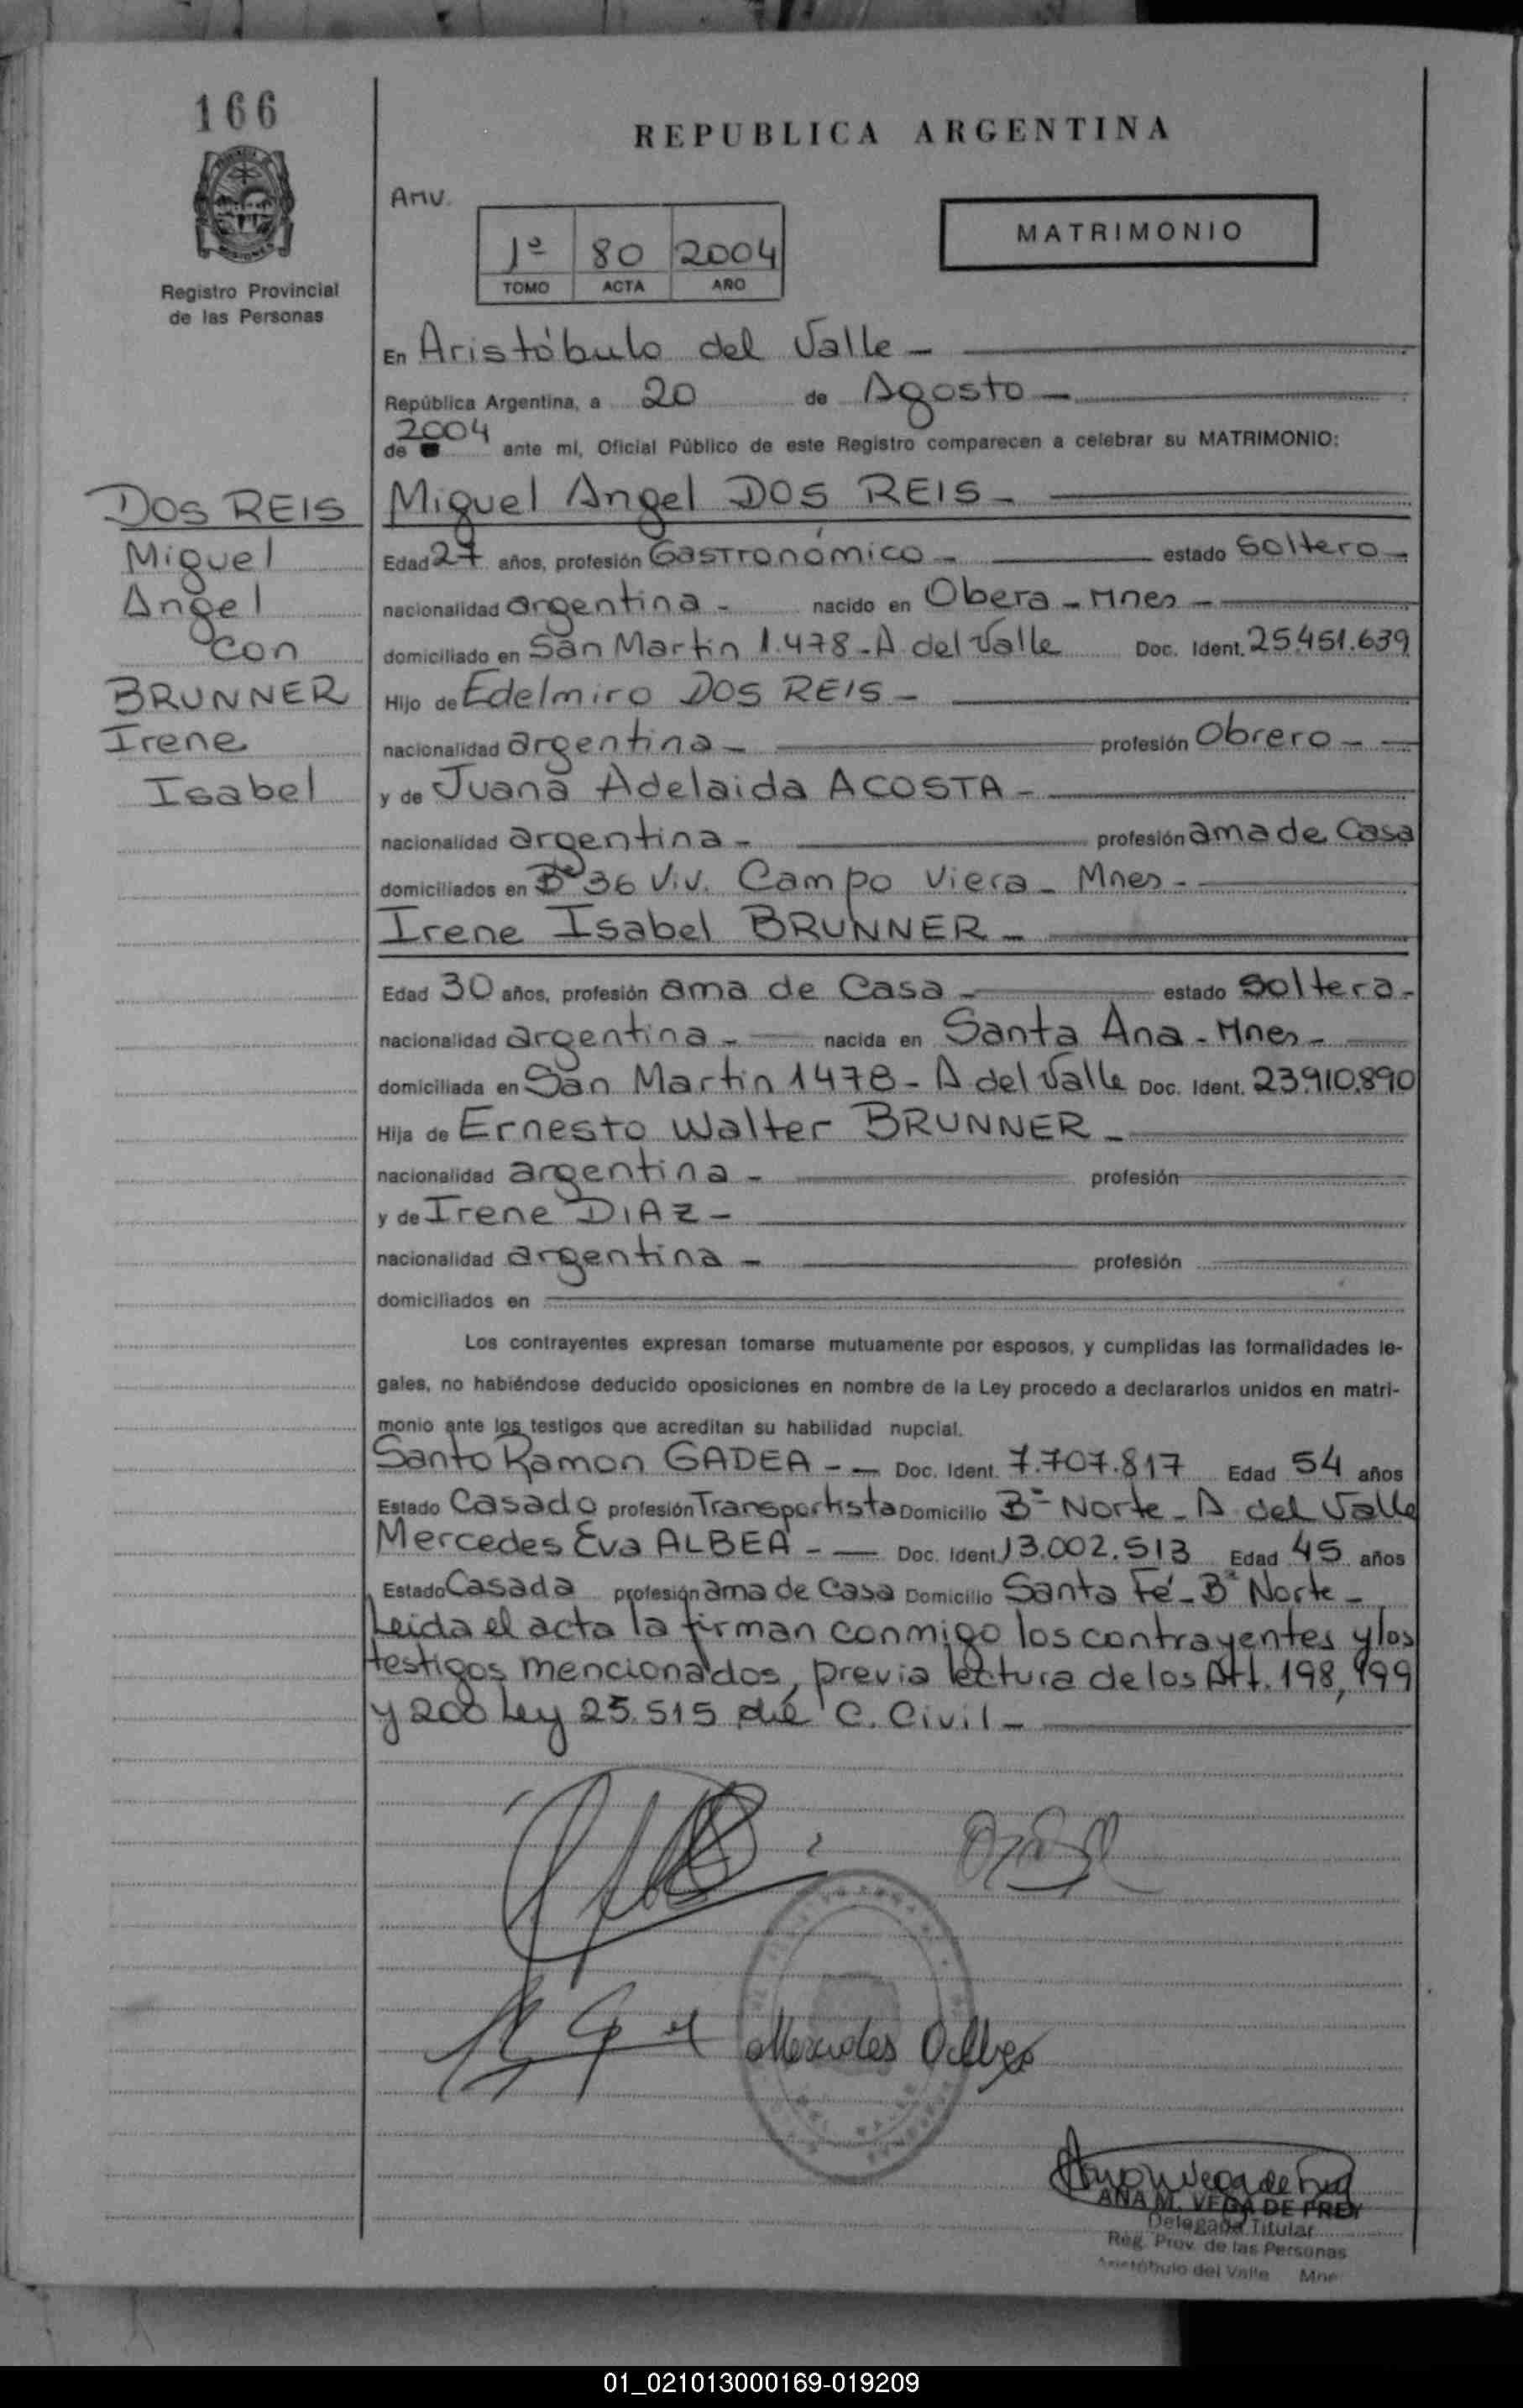 166
REPUBLICA ARGENTINA
Anv.
1º 80 2004
TOMO ACTA AÑO
MATRIMONIO
Registro Provincial
de las Personas
En Aristóbulo del Valle -
República Argentina, a 20 de Agosto -
de 2004 ante mi, Oficial Público de este Registro comparecen a celebrar su MATRIMONIO:
DOS REIS
Miguel
Angel
con
BRUNNER
Irene
Isabel
Miguel Angel DOS REIS -
Edad 27 años, profesión Gastronómico - estado Soltero -
nacionalidad argentina - nacido en Obera - Mnes -
domiciliado en San Martin 1.478 - A. del Valle Doc. Ident. 25.451.639
Hijo de Edelmiro DOS REIS -
nacionalidad argentina - profesión Obrero -
y de Juana Adelaida ACOSTA -
nacionalidad argentina - profesión ama de Casa
domiciliados en Bº 36 Viv. Campo Viera - Mnes -
Irene Isabel BRUNNER -
Edad 30 años, profesión ama de Casa - estado Soltera -
nacionalidad argentina - nacida en Santa Ana - Mnes -
domiciliada en San Martin 1478 - A. del Valle Doc. Ident. 23.910.890
Hija de Ernesto Walter BRUNNER -
nacionalidad argentina - profesión
y de Irene DIAZ -
nacionalidad argentina - profesión
domiciliados en
Los contrayentes expresan tomarse mutuamente por esposos, y cumplidas las formalidades le-
gales, no habiéndose deducido oposiciones en nombre de la Ley procedo a declararlos unidos en matri-
monio ante los testigos que acreditan su habilidad nupcial.
Santo Ramon GADEA - - Doc. Ident. 7.707.817 Edad 54 años
Estado Casado profesión Transportista Domicilio Bº Norte - A del Valle
Mercedes Eva ALBEA - - Doc. Ident. 13.002.513 Edad 45 años
Estado Casada profesión ama de Casa Domicilio Santa Fé - Bº Norte -
Leida el acta la firman conmigo los contrayentes y los
testigos mencionados, previa lectura de los Art. 198, 199
y 200 Ley 25.515 del C. Civil -
Mercedes Albea
ANA M. VEGA DE PREY
Delegada Titular
Reg. Prov. de las Personas
Aristóbulo del Valle Mnes
01_021013000169-019209